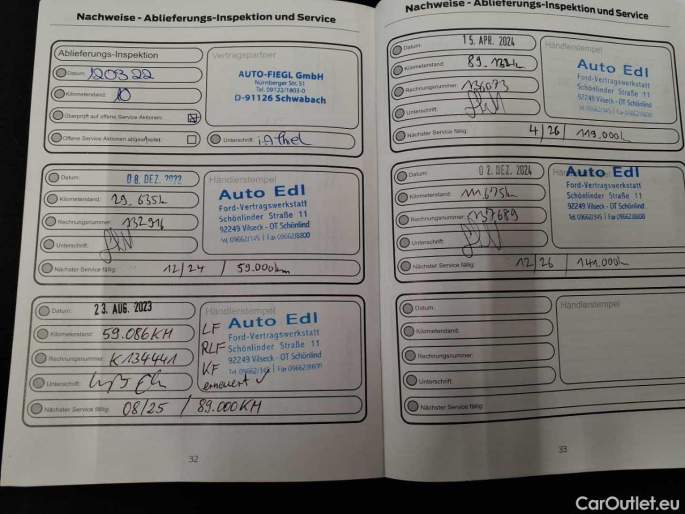 Nachweise - Ablieferungs-Inspektion und Service
Ablieferungs-Inspektion
Datum: 120322
Kilometerstand: 10
Überprüft auf offene Service Aktionen:
Offene Service Aktionen abgearbeitet:
Vertragspartner
AUTO-FIEGL GmbH
Nürnberger Str. 51
Tel. 09122/1803-0
D-91126 Schwabach
Unterschrift:
Datum: 08. DEZ. 2022
Kilometerstand: 29.635k
Rechnungsnummer: 132916
Unterschrift:
Nächster Service fällig: 12/24 / 59.000km
Händlerstempel
Auto Edl
Ford-Vertragswerkstatt
Schönlinder Straße 11
92249 Vilseck - OT Schönlind
Tel. 09662/345 | Fax 09662/8800
Datum: 23. AUG. 2023
Kilometerstand: 59.086KM
Rechnungsnummer: K134441
Unterschrift:
Nächster Service fällig: 08/25 / 89.000KM
Händlerstempel
LF
RLF
KF
erneuert ✓
Auto Edl
Ford-Vertragswerkstatt
Schönlinder Straße 11
92249 Vilseck - OT Schönlind
Tel. 09662/345 | Fax 09662/8800
32
Nachweise - Ablieferungs-Inspektion und Service
Datum: 15. APR. 2024
Kilometerstand: 89.132k
Rechnungsnummer:
Unterschrift:
Nächster Service fällig: 4/26 / 119.000k
Händlerstempel
Auto Edl
Ford-Vertragswerkstatt
Schönlinder Straße 11
92249 Vilseck - OT Schönlind
Tel. 09662/345 | Fax 09662/8800
Datum: 02. DEZ. 2024
Kilometerstand: 111.675k
Rechnungsnummer: 137689
Unterschrift:
Nächster Service fällig: 12/26 / 141.000k
Händlerstempel
Auto Edl
Ford-Vertragswerkstatt
Schönlinder Straße 11
92249 Vilseck - OT Schönlind
Tel. 09662/345 | Fax 09662/8800
Datum:
Kilometerstand:
Rechnungsnummer:
Unterschrift:
Nächster Service fällig:
Händlerstempel
33
CarOutlet.eu